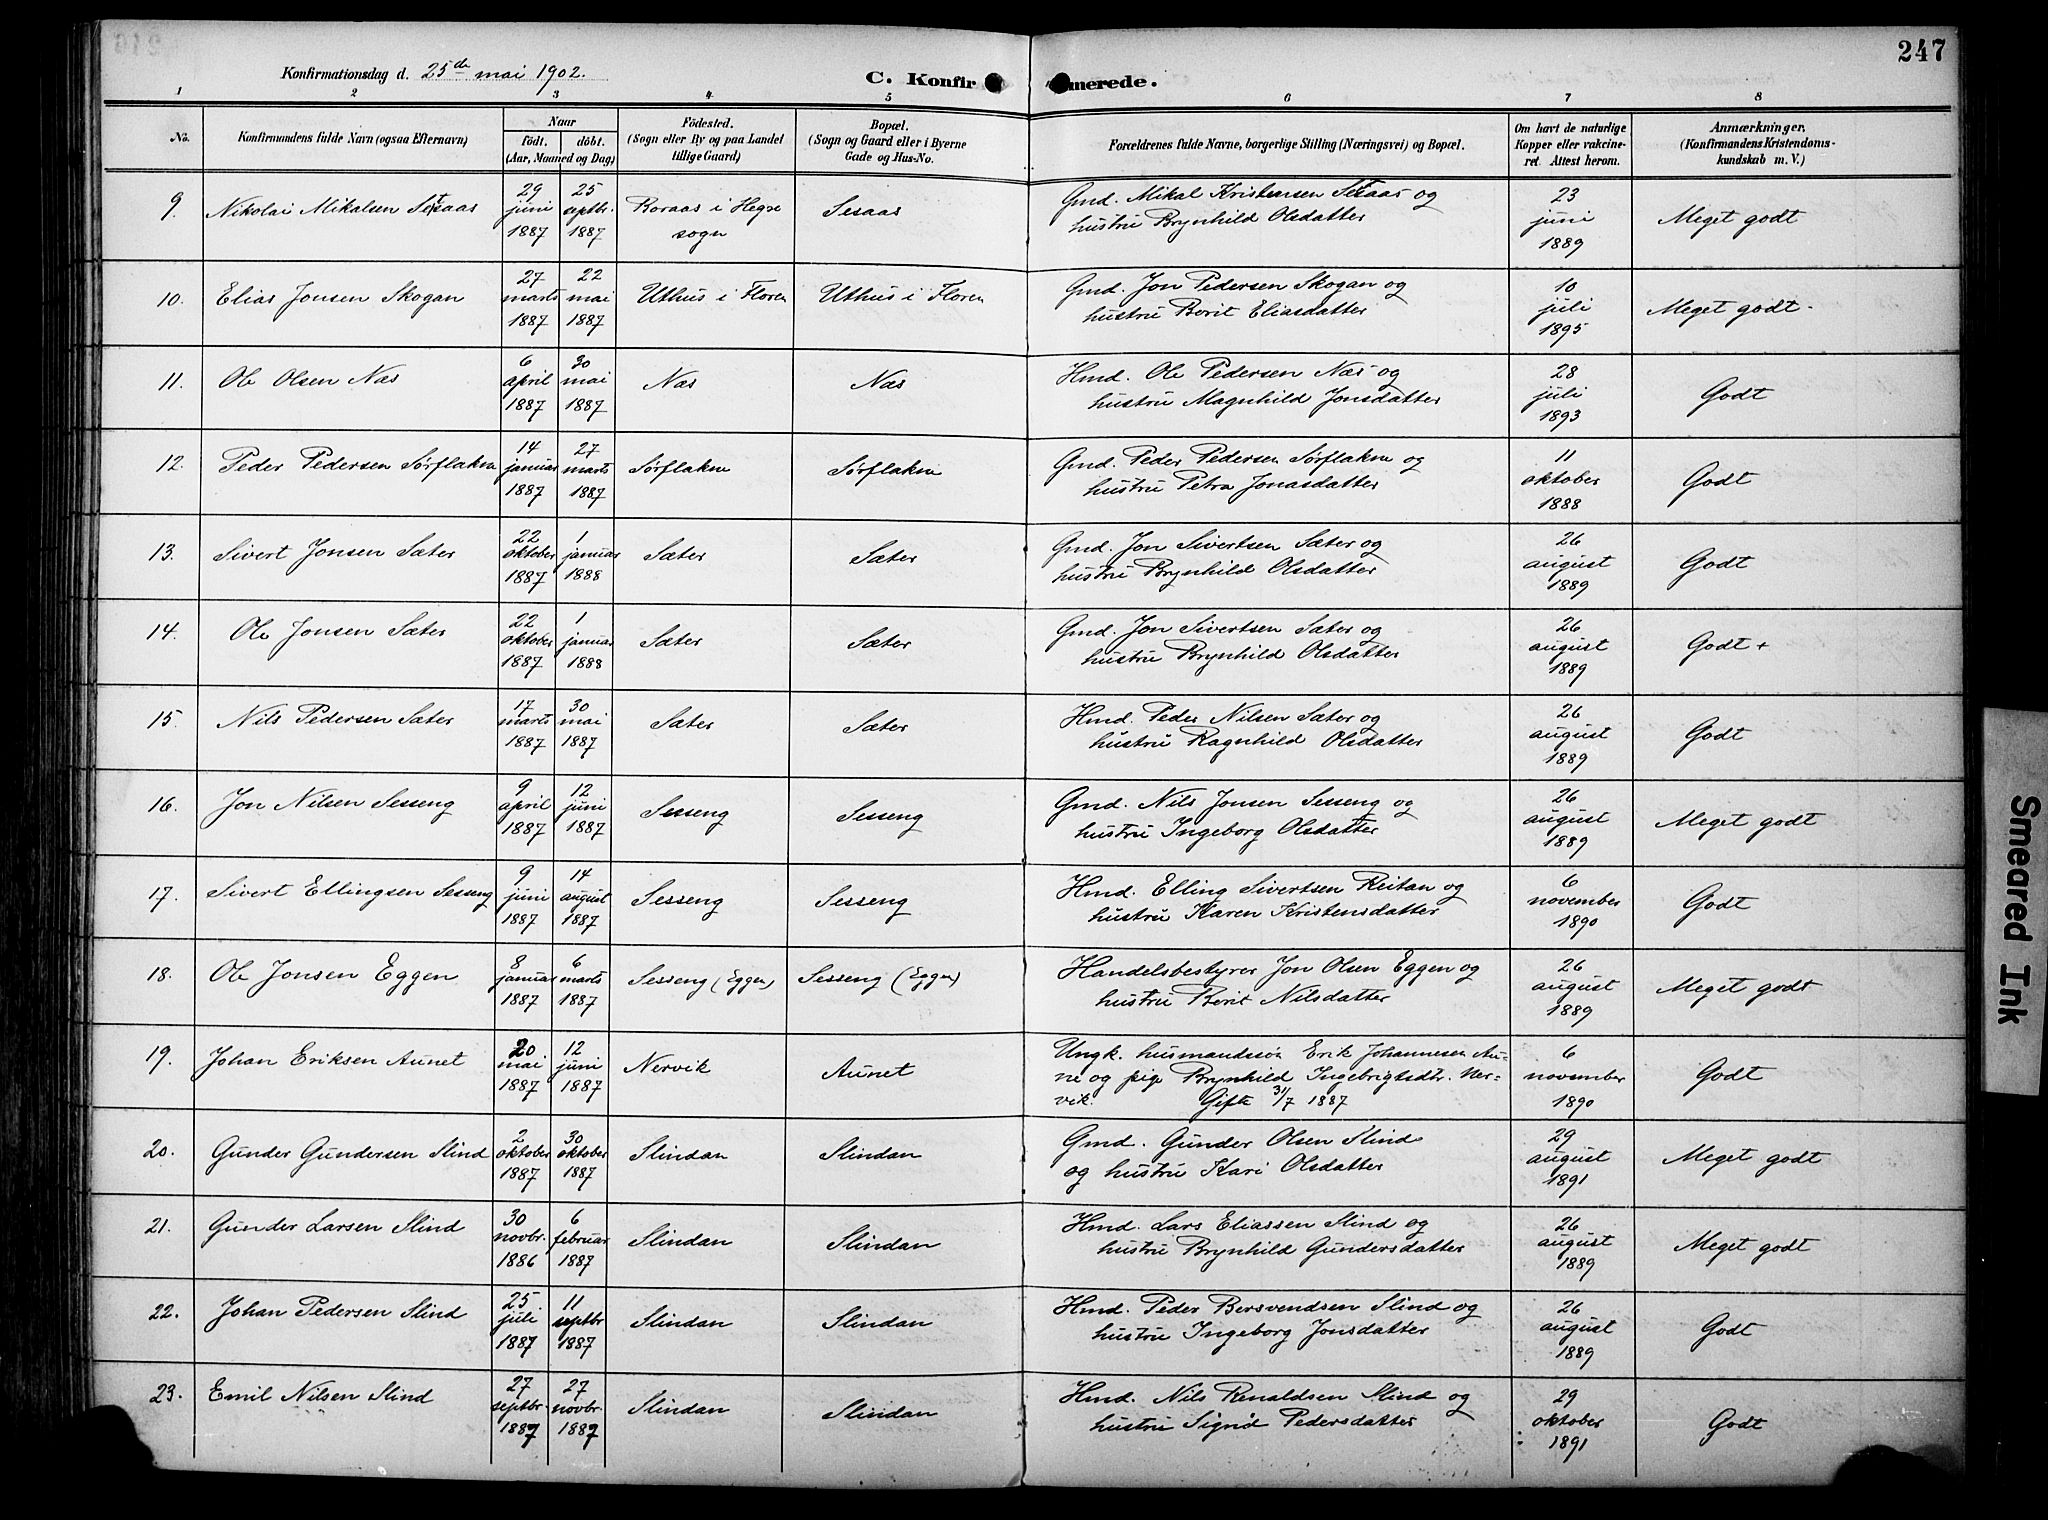 247
Konfirmationsdag d. 25de mai 1902.
C. Konfirmerede.
1 2 3 4 5 6 7 8
No.
Konfirmandens fulde Navn (ogsaa Efternavn)
Naar
födt. döbt.
(Aar, Maaned og Dag)
Födested.
(Sogn eller By og paa Landet
tillige Gaard)
Bopæl.
(Sogn og Gaard eller i Byerne
Gade og Hus-No.
Forældrenes fulde Navne, borgerlige Stilling (Næringsvei) og Bopæl.
Om havt de naturlige
Kopper eller vakcine-
ret. Attest herom.
Anmærkninger.
(Konfirmandens Kristendoms-
kundskab m. V.)
9. Nikolai Mikalsen Setsaas
29 juni 1887
25 septbr. 1887
Roraas i Hegre
sogn
Sesaas
Gmd. Mikal Kristensen Setsaas og
hustru Brynhild Olsdatter
23 juni 1889
Meget godt
10. Elias Jonsen Skogan
27 marts 1887
22 mai 1887
Uthus i Floren
Uthus i Floren
Gmd. Jon Pedersen Skogan og
hustru Berit Eliasdatter
10 juli 1895
Meget godt -
11. Ole Olsen Næs
6 april 1887
30 mai 1887
Næs
Næs
Hmd. Ole Pedersen Næs og
hustru Magnhild Jonsdatter
28 juli 1893
Godt
12. Peder Pedersen Sørflakne
14 januar 1887
27 marts 1887
Sørflakne
Sørflakne
Gmd. Peder Pedersen Sørflakne og
hustru Petra Jonasdatter
11 oktober 1888
Godt
13. Sivert Jonsen Sæter
22 oktober 1887
1 januar 1888
Sæter
Sæter
Gmd. Jon Sivertsen Sæter og
hustru Brynhild Olsdatter
26 august 1889
Godt
14. Ole Jonsen Sæter
22 oktober 1887
1 januar 1888
Sæter
Sæter
Gmd. Jon Sivertsen Sæter og
hustru Brynhild Olsdatter
26 august 1889
Godt +
15. Nils Pedersen Sæter
17 marts 1887
30 mai 1887
Sæter
Sæter
Hmd. Peder Nilsen Sæter og
hustru Ragnhild Olsdatter
26 august 1889
Godt
16. Jon Nilsen Sesseng
9 april 1887
12 juni 1887
Sesseng
Sesseng
Gmd. Nils Jonsen Sesseng og
hustru Ingeborg Olsdatter
26 august 1889
Meget godt
17. Sivert Ellingsen Sesseng
9 juni 1887
14 august 1887
Sesseng
Sesseng
Hmd. Elling Sivertsen Reitan og
hustru Karen Kristensdatter
6 november 1890
Godt
18. Ole Jonsen Eggen
8 januar 1887
6 marts 1887
Sesseng (Eggen)
Sesseng (Eggen)
Handelsbestyrer Jon Olsen Eggen og
hustru Berit Nilsdatter
26 august 1889
Meget godt
19. Johan Eriksen Aunet
20 mai 1887
12 juni 1887
Nervik
Aunet
Ungk. husmandssøn Erik Johannesen Au-
ne og pige Brynhild Ingebrigtsdtr. Ner-
vik. Gifte 31/7 1887
6 november 1890
Godt
20. Gunder Gundersen Slind
2 oktober 1887
30 oktober 1887
Slindan
Slindan
Gmd. Gunder Olsen Slind
og hustru Kari Olsdatter
29 august 1891
Meget godt
21. Gunder Larsen Slind
30 novbr. 1886
6 februar 1887
Slindan
Slindan
Hmd. Lars Eliassen Slind og
hustru Brynhild Gundersdatter
26 august 1889
Meget godt
22. Johan Pedersen Slind
25 juli 1887
11 septbr 1887
Slindan
Slindan
Hmd. Peder Bersvendsen Slind og
hustru Ingeborg Jonsdatter
26 august 1889
Godt
23. Emil Nilsen Slind
27 septbr. 1887
27 novbr. 1887
Slindan
Slindan
Hmd. Nils Renaldsen Slind og
hustru Sigrid Pedersdatter
29 oktober 1891
Godt
Smeared Ink